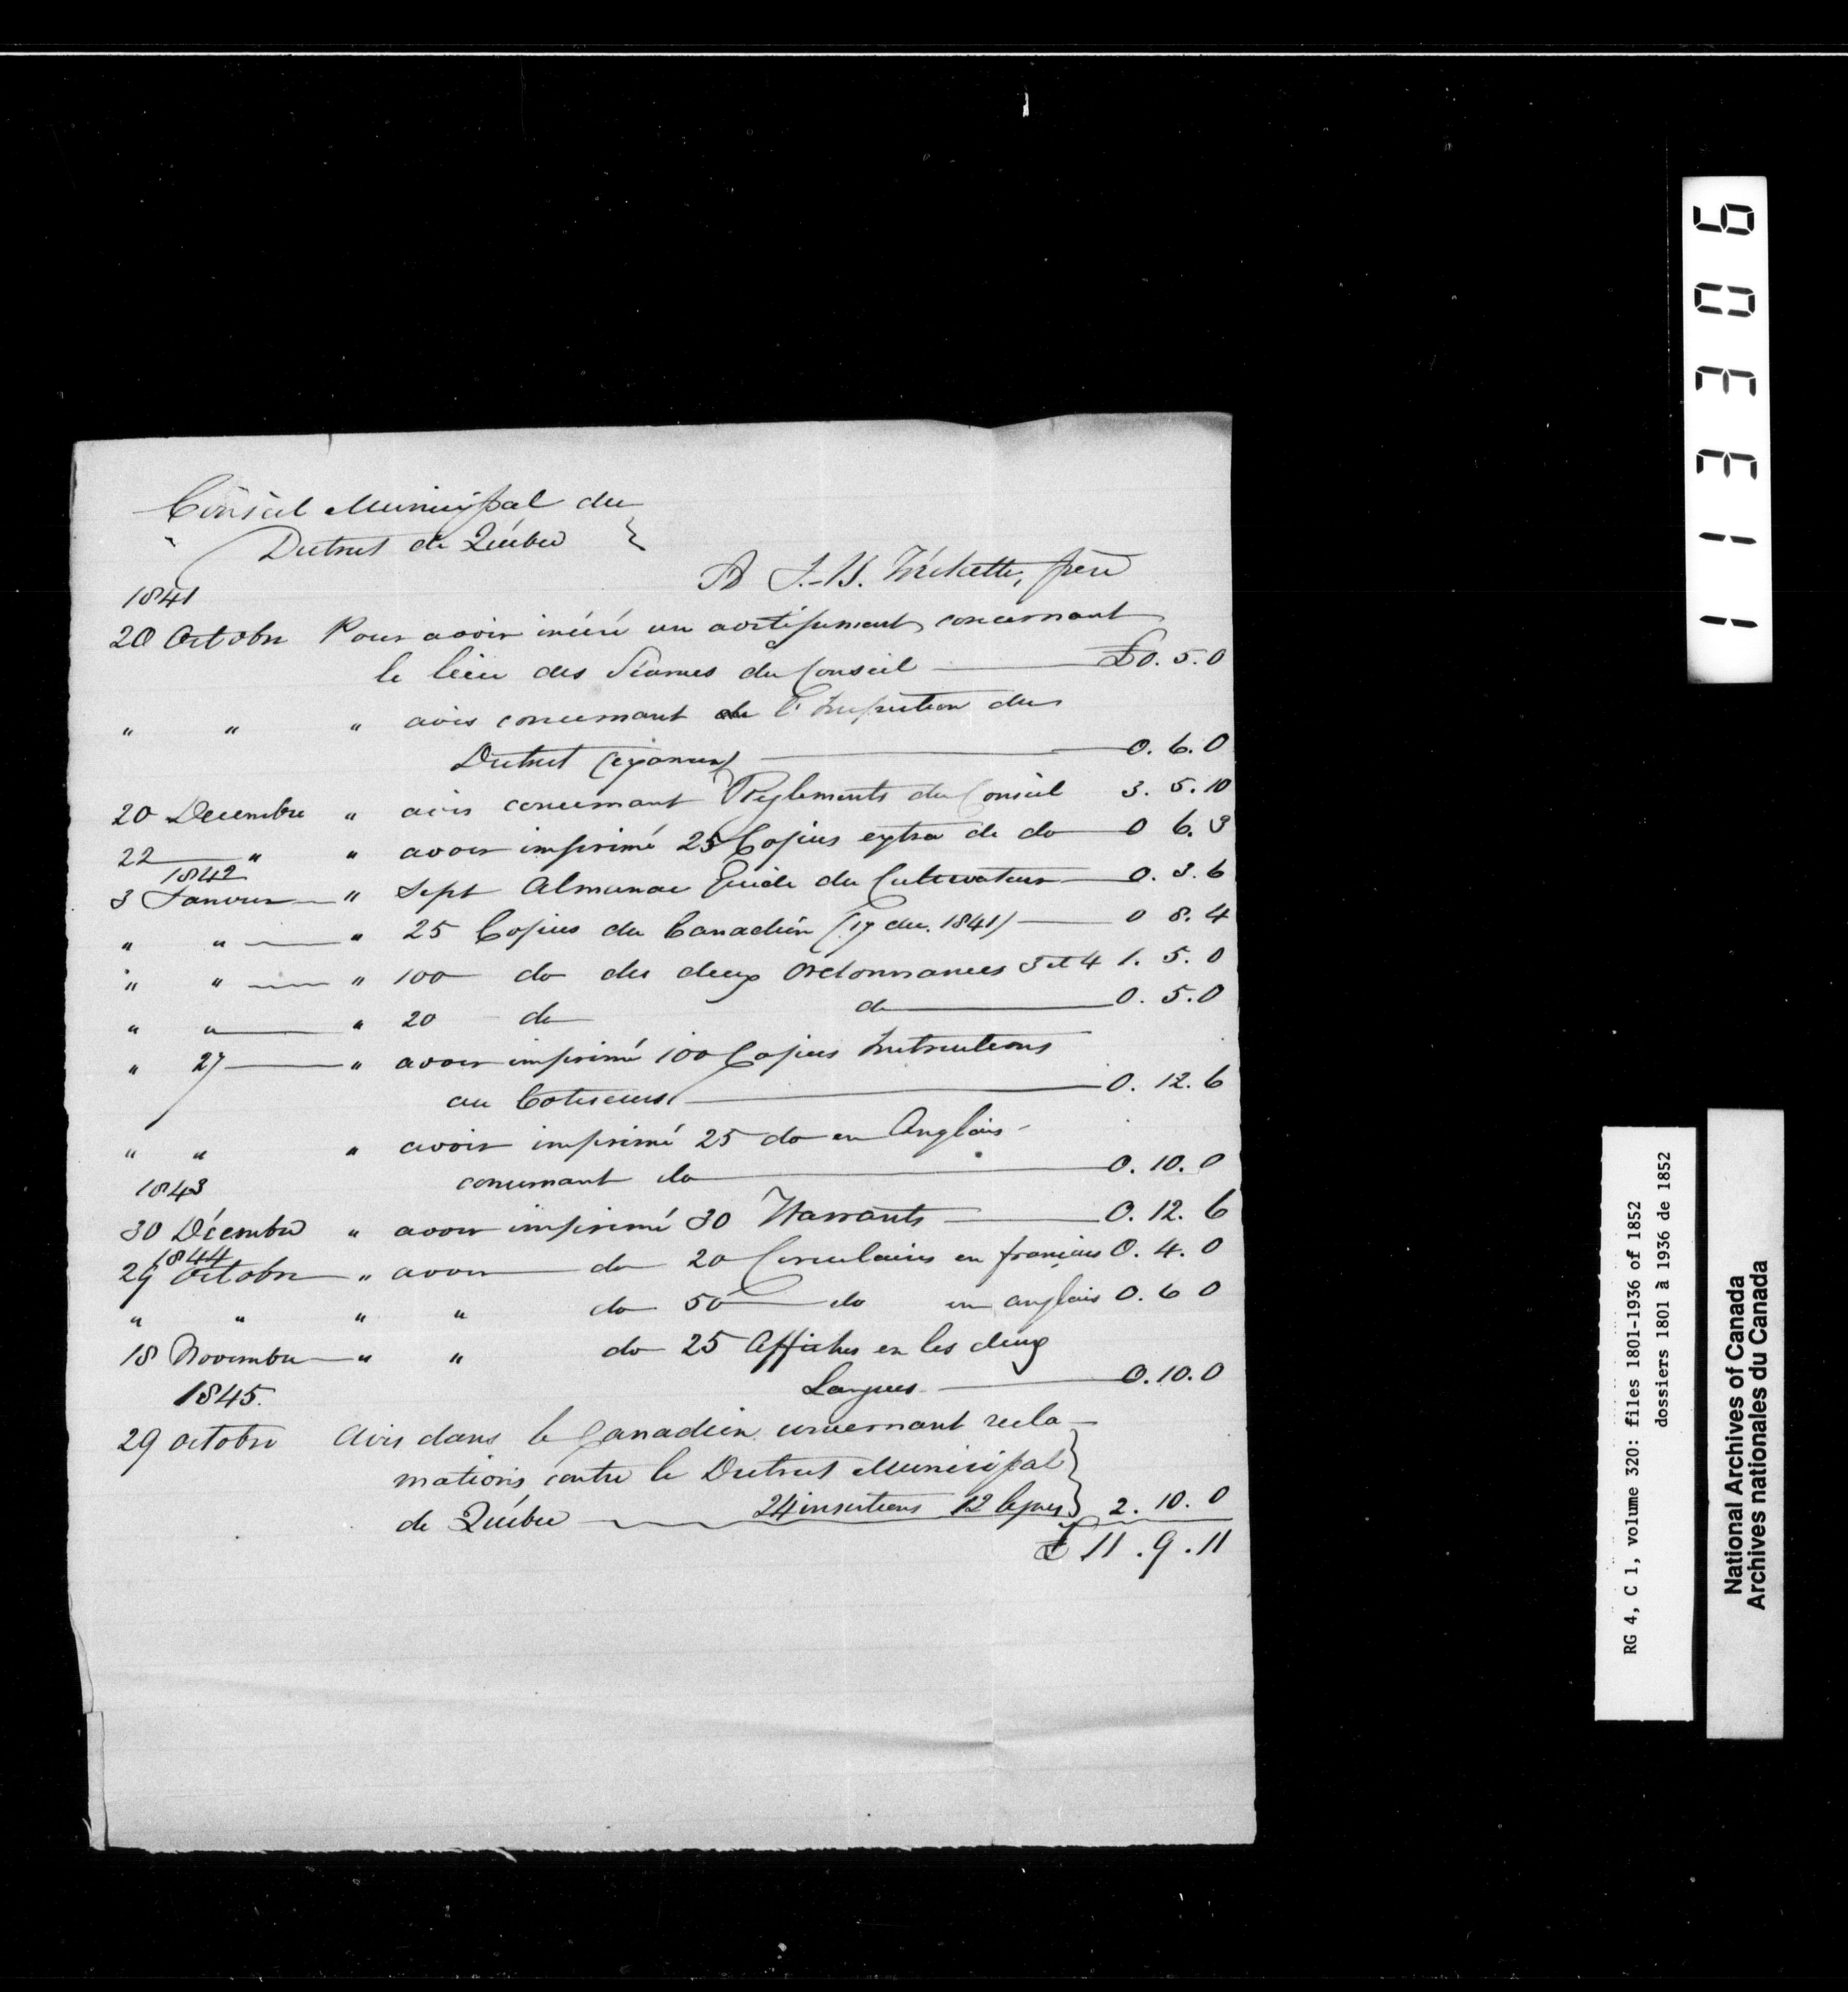 Conseil Municipal du
District de Québec }
A J.-B. Fréchette, père
1841
20 Octobre Pour avoir inséré un avertissement concernant
le lieu des Séances du Conseil £0. 5. 0
" " " avis concernant de l'Inspection du
District 0. 6. 0
20 Decembre " avis concernant Règlements du Conseil 3. 5. 10
22 " " avoir imprimé 25 Copies extra de do 0 6. 3
1842
3 Janvier " Sept Almanac Guide du Cultivateur 0. 3. 6
" " " 25 Copies du Canadien (17 dec. 1841) 0 8. 4
" " " 100 do des deux Ordonnances 3 et 4 1. 5. 0
" " " 20 do do 0. 5. 0
" 27 " avoir imprimé 100 Copies Instructions
au Cotiseurs 0. 12. 6
" " " avoir imprimé 25 do en Anglais
concernant do 0. 10. 0
1843
30 Décembre " avoir imprimé 30 Warrants 0. 12. 6
1844
29 Octobre " avoir do 20 Circulaires en français 0. 4. 0
" " " " do 50 do en anglais 0. 6 0
18 Novembre " " do 25 Affiches en les deux
Langues 0. 10. 0
1845.
29 octobre Avis dans le Canadien concernant recla-
mations contre le District Municipal
de Québec 24 insertions 12 lignes } 2. 10. 0
£ 11. 9. 11
113306
RG 4, C 1, volume 320: files 1801-1936 of 1852
dossiers 1801 à 1936 de 1852
National Archives of Canada
Archives nationales du Canada